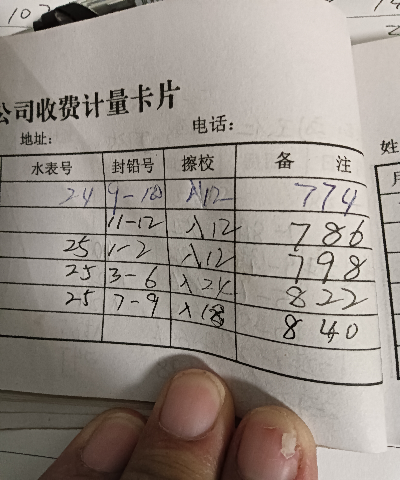 公司收费计量卡片
地址： 电话：
水表号 封铅号 擦校 备 注
24 9-10 入12 774
11-12 入12 786
25 1-2 入12 798
25 3-6 入24 822
25 7-9 入18 840
姓
月